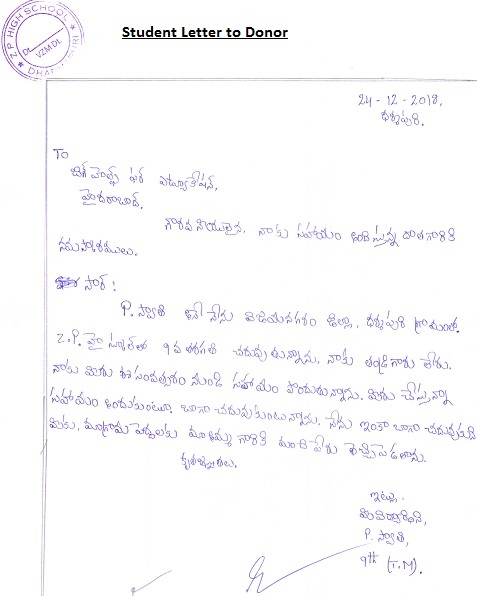 Z.P HIGH SCHOOL
VZM Dt.
Student Letter to Donor
24-12-2018,
ధర్మపురి.
To
బిగ్ హెల్ప్ ఫర్ ఎడ్యూకేషన్,
హైదరాబాద్.
గౌరవనీయులైన, నాకు సహాయం అందిస్తున్న దాతగారికి
నమస్కారములు.
సార్!
P. స్వాతి అనే నేను విజయనగరం జిల్లా, ధర్మపురి గ్రామంలో.
Z.P. హై స్కూల్‌లో 9వ తరగతి చదువుతున్నాను. నాకు తండ్రిగారు లేరు.
నాకు మీరు ఈసంవత్సరం నుండి సహాయం పొందుతున్నాను. మీరు చేస్తున్న
సహాయం అందుకుంటూ బాగా చదువుకుంటున్నాను. నేను ఇంకా బాగా చదువుకుని
మీకు, మాగ్రామ పెద్దలకు మా అమ్మ గారికి మంచి పేరు తెచ్చిపెడతాను.
కృతజ్ఞతలు.
ఇట్లు,
మీ విద్యార్థిని,
P. స్వాతి,
9th (T.M)